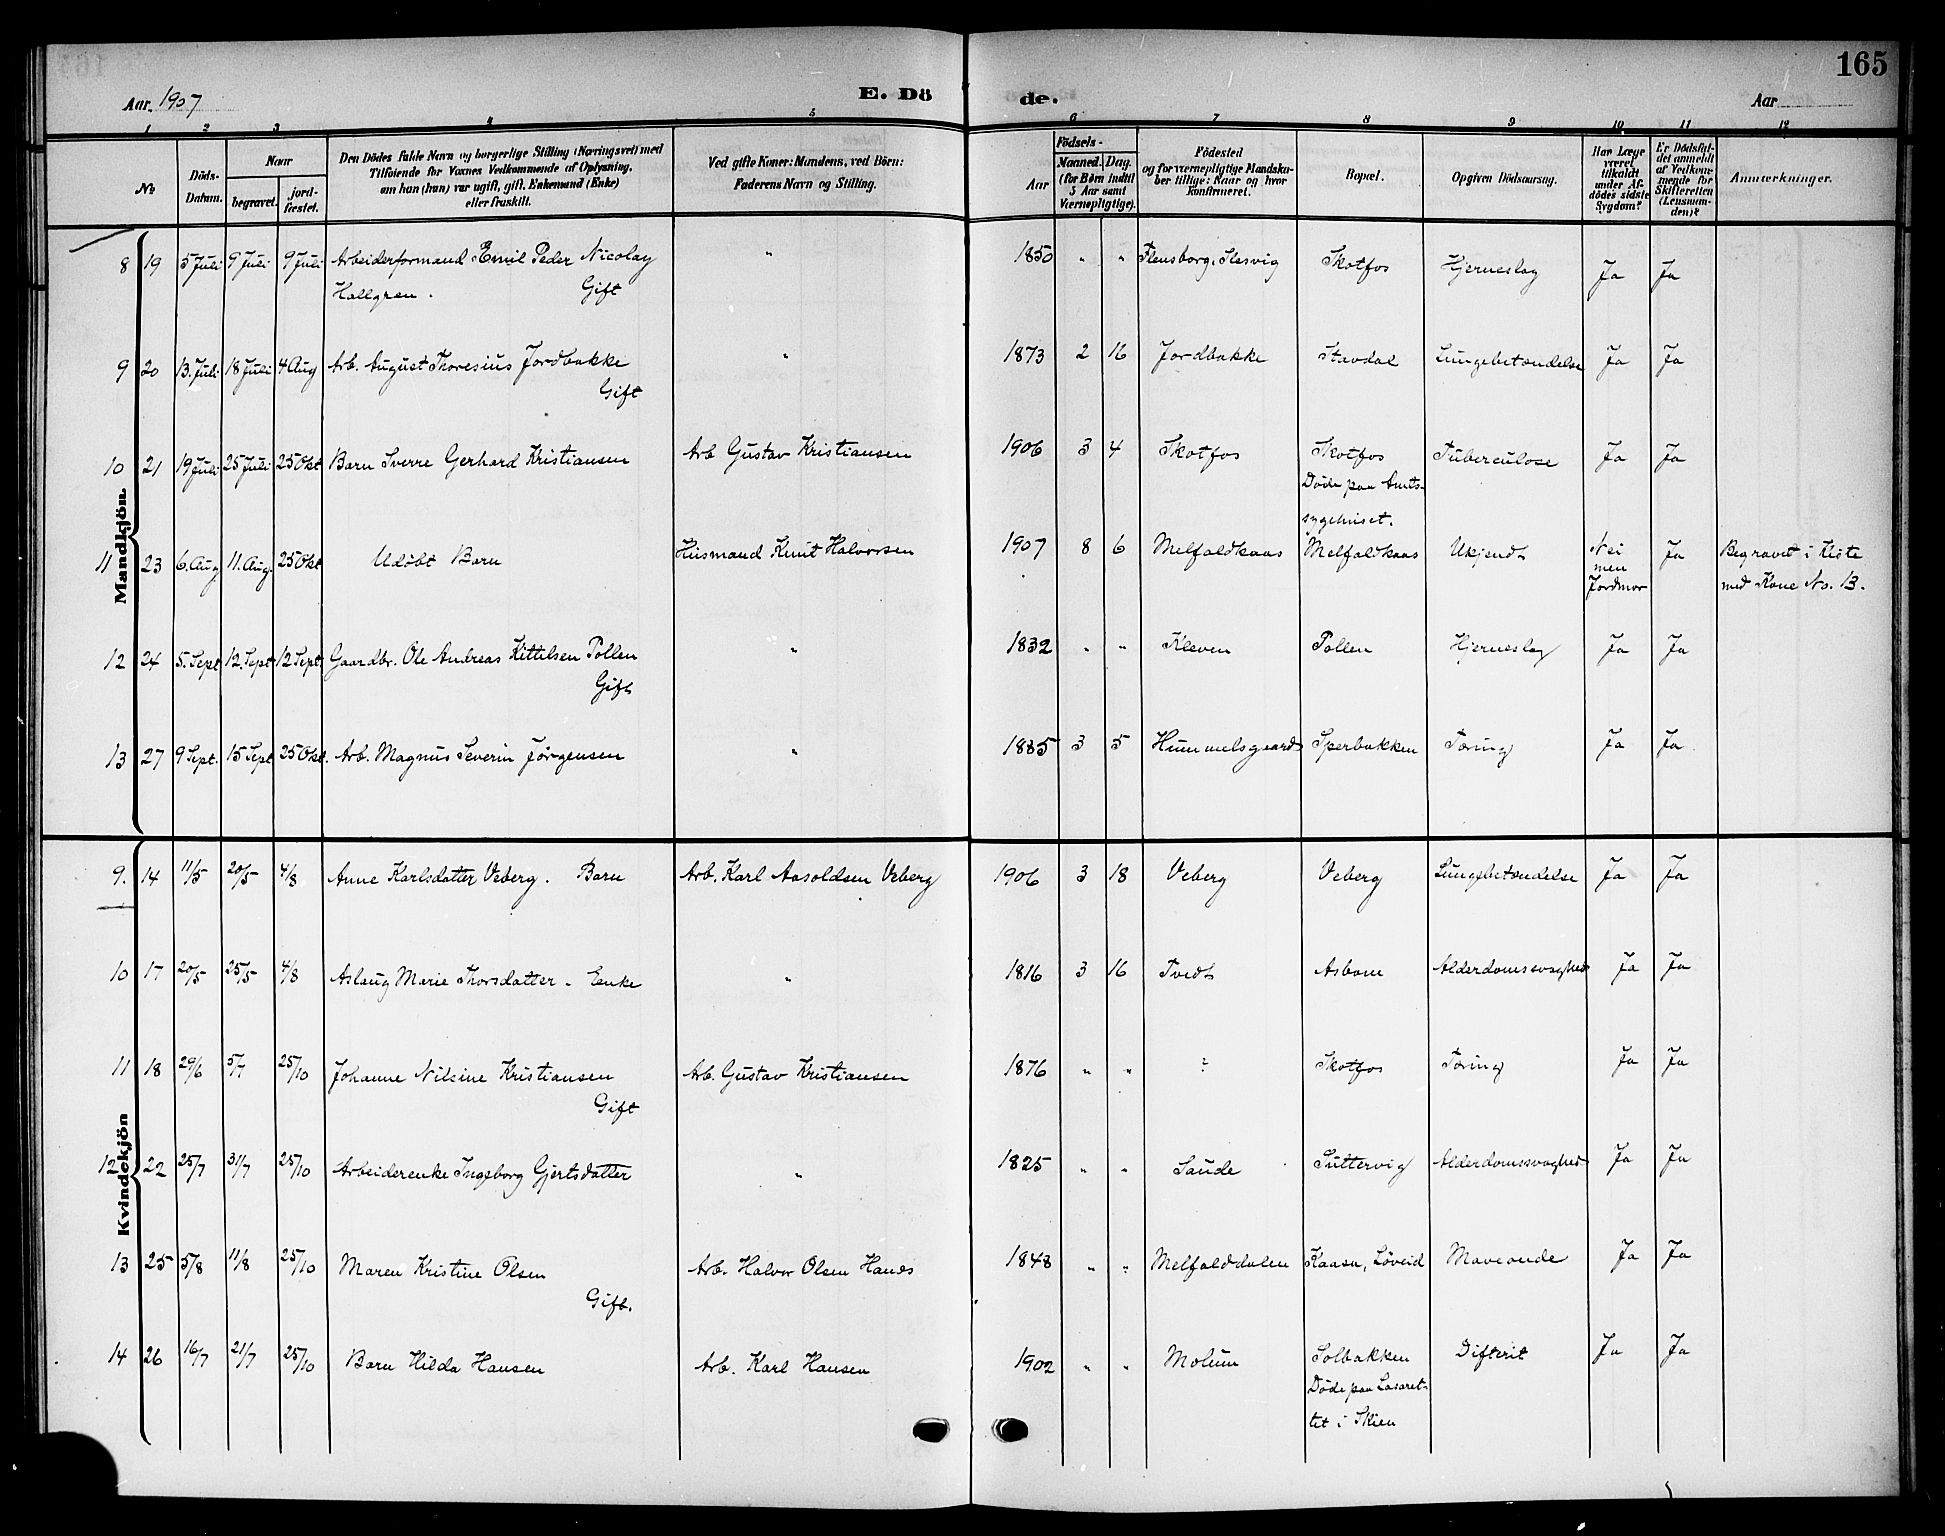 165
Aar 1907 E. Dö de. Aar
1 2 3 4 5 6 7 8 9 10 11 12
No
Döds-Datum.
Naar
begravet.
jord-fæstet.
Den Dödes fulde Navn og borgerlige Stilling (Næringsvei) med
Tilföiende for Voxnes Vedkommende af Oplysning,
om han (hun) var ugift, gift, Enkemand (Enke)
eller fraskilt.
Ved gifte Koner: Mandens, ved Börn:
Faderens Navn og Stilling.
Aar
Födsels-
Maaned. Dag.
(for Børn indtil
5 Aar samt
Værnepligtige).
Födested
og for værnepligtige Mandska-
ber tillige: Naar og hvor
konfirmeret.
Bopæl.
Opgiven Dödsaarsag.
Har Læge
været
tilkaldt
under Af-
dödes sidste
Sygdom?
Er Dödsfal-
det anmeldt
af Vedkom-
mende for
Skifteretten
(Lensman-
den)?
Anmærkninger.
Mandkjön.
8 19 5 Juli 9 Juli 9 Juli Arbeiderformand Emil Peder Nicolay " 1850 " " Flensborg, Slesvig Skotfos Hjerneslag Ja Ja
Hallgren. Gift
9 20 13. Juli 18 Juli 4 Aug Arb. August Thoresius Jordbakke " 1873 2 16 Jordbakke Stavdal Lungebetændelse Ja Ja
Gift
10 21 19 Juli 25 Juli 25 Okt Barn Sverre Gerhard Kristiansen Arb Gustav Kristiansen 1906 3 4 Skotfos Skotfos Tuberculose Ja Ja
Døde paa Amts-
sygehuset.
11 23 6. Aug 11. Aug. 25 Okt Udøbt Barn Husmand Knut Halvorsen 1907 8 6 Melfaldkaas Melfaldkaas Ukjendt Nei Ja Begravet i Kiste
men med Kone No. 13.
Jordmor
12 24 5. Sept 12. Sept 12 Sept Gaardbr. Ole Andreas Kittilsen Pollen " 1832 " " Kleven Pollen Hjerneslag Ja Ja
Gift
13 27 9 Sept. 15 Sept 25 Okt. Arb. Magnus Severin Jørgensen " 1885 3 5 Hummelsgaard Sperbakken Tæring Ja Ja
Kvindekjön
9. 14 11/5 20/5 4/8 Anne Karlsdatter Veberg. Barn Arb. Karl Aasoldsen Veberg 1906 3 18 Veberg Veberg Lungebetændelse Ja Ja
10 17 20/5 25/5 4/8 Aslaug Marie Thorsdatter - Enke " 1816 3 16 Tvedt Asbom Alderdomssvaghed Ja Ja
11 18 29/6 5/7 25/10 Johanne Nilsine Kristiansen Arb. Gustav Kristiansen 1876 " " ? Skotfos Tæring Ja Ja
Gift
12 22 25/7 31/7 25/10 Arbeiderenke Ingeborg Gjertsdatter " 1825 " " Saude Suttervig Alderdomssvaghed Ja Ja
13 25 5/8 11/8 25/10 Maren Kristine Olsen Arb. Halvor Olsen 1848 " " Melfalddalen Kaasa, Løveid Maveonde Ja Ja
Gift.
14 26 16/7 21/7 25/10 Barn Hilda Hansen Arb. Karl Hansen 1902 " " Molum Solbakken Difterit Ja Ja
Døde paa Lasaret-
tet i Skien